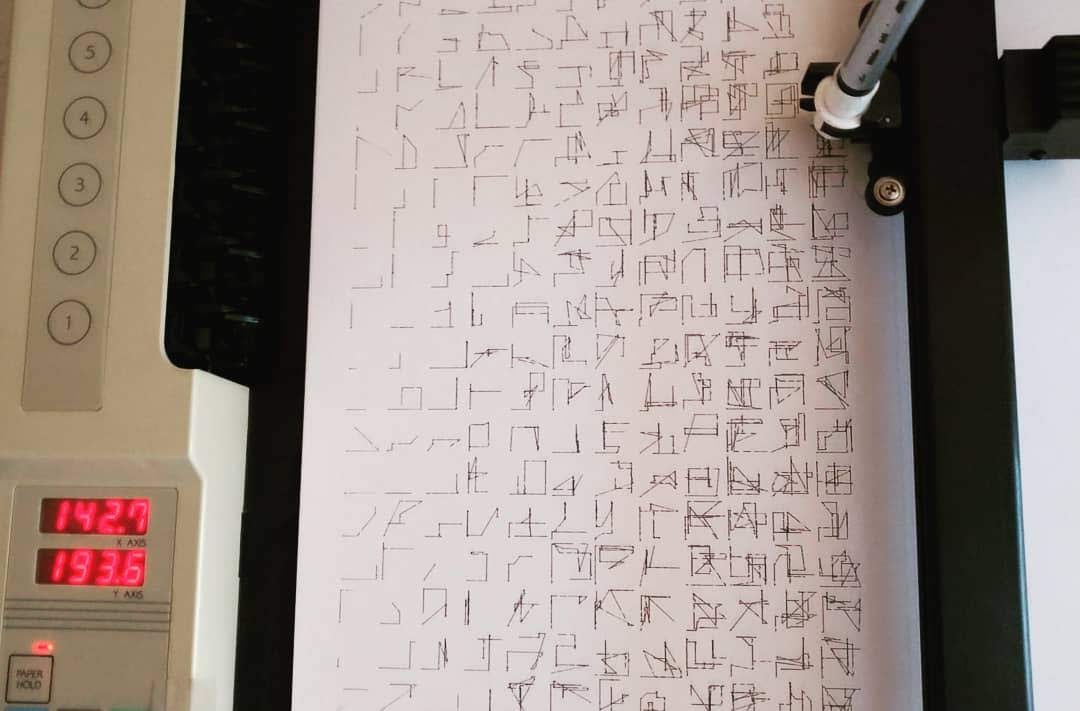 5
4
3
2
1
142.7
X AXIS
193.6
Y AXIS
PAPER
HOLD